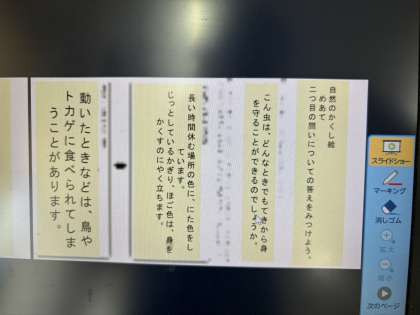 自然のかくし絵
めあて
二つ目の問いについての答えをみつけよう。
こん虫は、どんなときでもてきから身
を守ることができるのでしょうか。
長い時間休む場所の色に、にた色をし
ています。
じっとしているかぎり、ほご色は、身を
かくすのにやく立ちます。
動いたときなどは、鳥や
トカゲに食べられてしま
うことがあります。
スライドショー
マーキング
消しゴム
拡大
縮小
次のページ